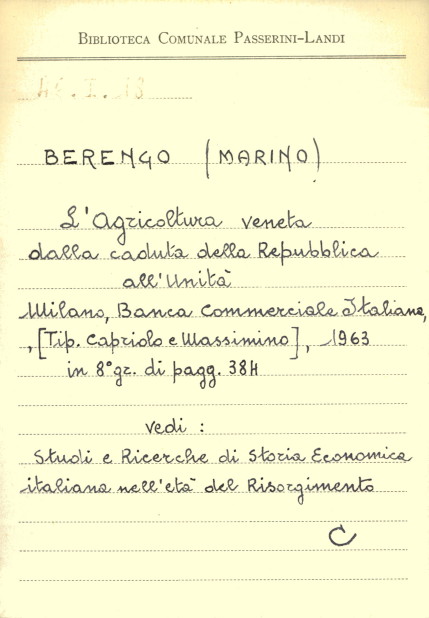 BIBLIOTECA COMUNALE PASSERINI-LANDI
BERENGO (MARINO)
L'Agricoltura veneta
dalla caduta della Repubblica
all'Unità
Milano, Banca Commerciale Italiana,
, [Tip. Capriolo e Massimino], 1963
in 8° gr. di pagg. 384
vedi :
Studi e Ricerche di Storia Economica
italiana nell'età del Risorgimento
C